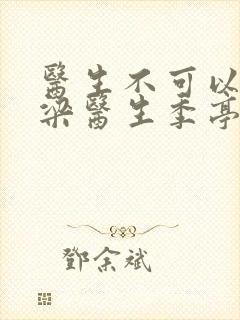 醫生不可以
梁醫生季亭
鄧余斌